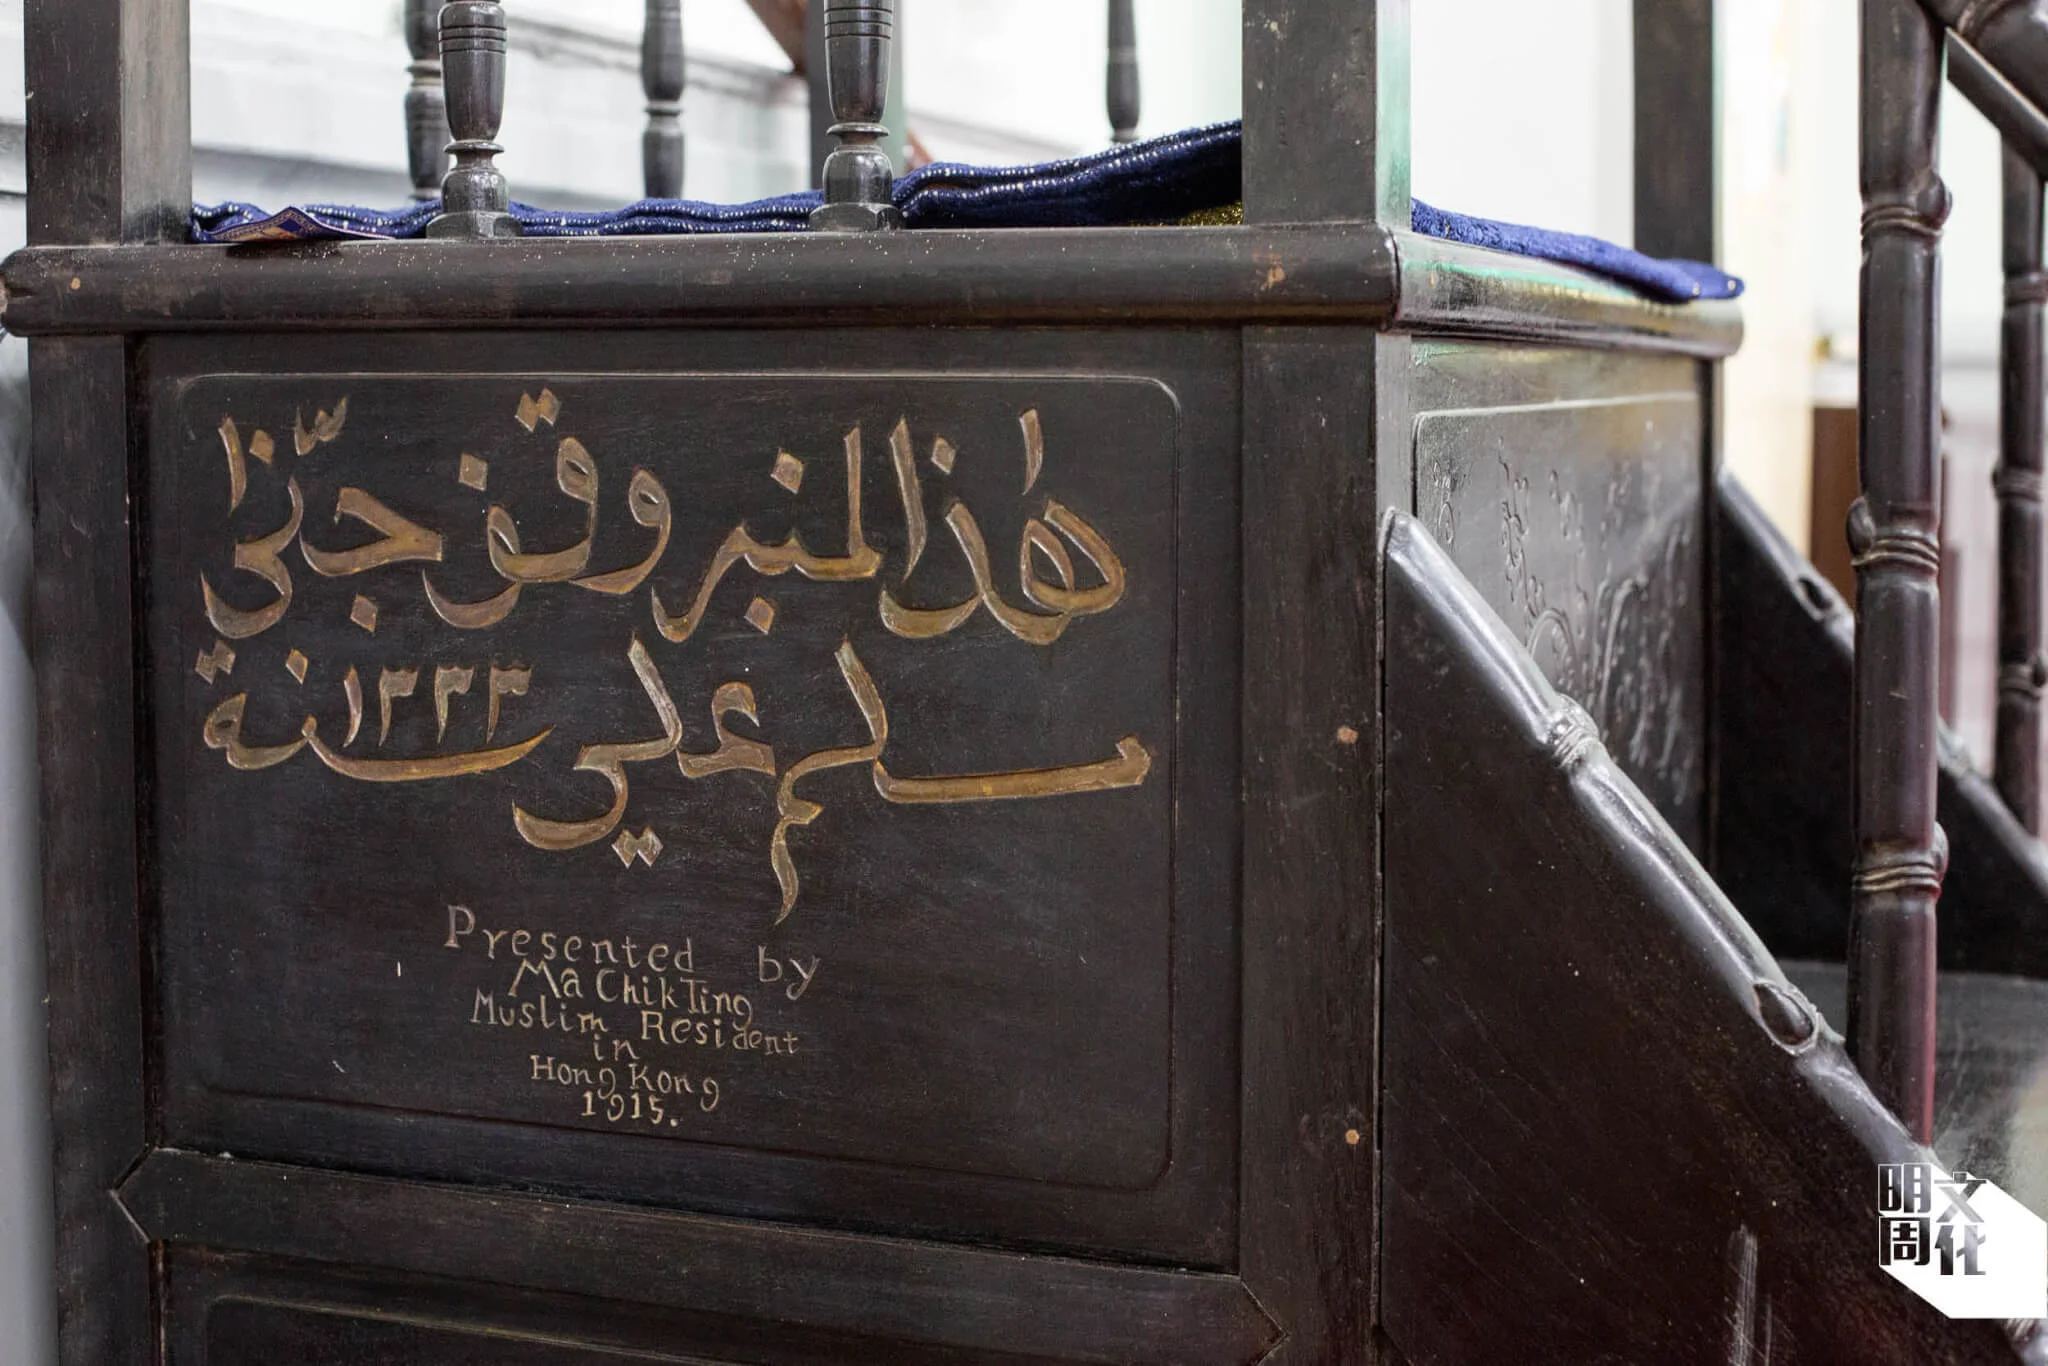 هذالمنبر وقف
مسلم علي سنة ١٣٣٣
Presented by
Ma Chik Ting
Muslim Resident
in
Hong Kong
1915.
明周文化